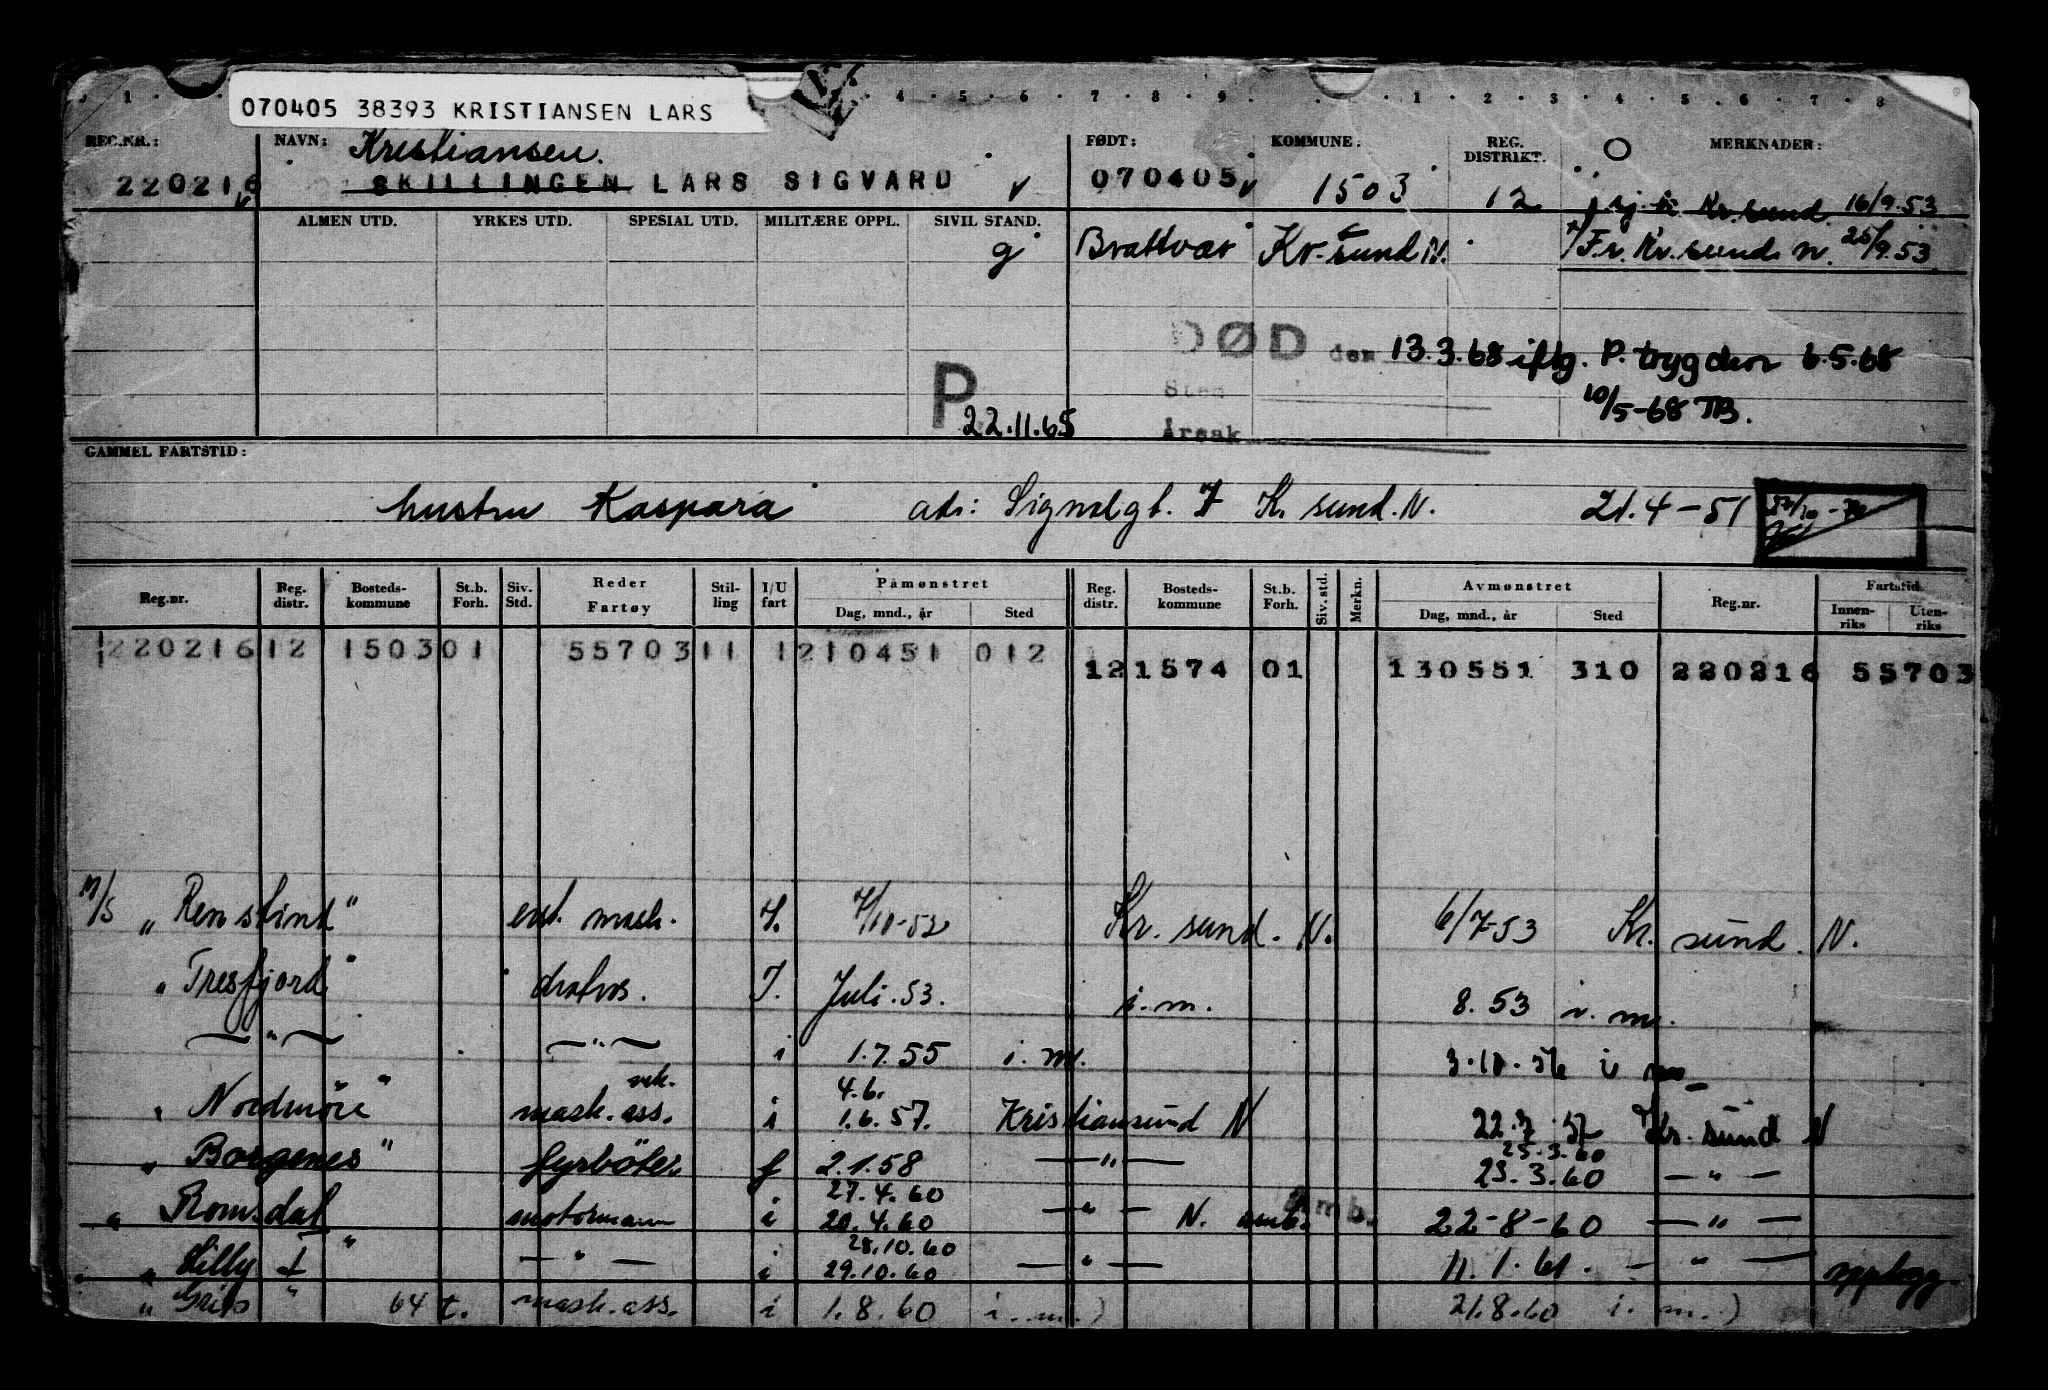 070405 38393 KRISTIANSEN LARS
1 4 5 6 7 8 9 1 2 3 4 5 6 7 8
REG.NR.: NAVN: Kristiansen. FØDT: KOMMUNE: REG. DISTRIKT. MERKNADER:
220216 SKILLINGEN LARS SIGVARD 070405 1503 12 Kr.sund. 16/9.53
ALMEN UTD. YRKES UTD. SPESIAL UTD. MILITÆRE OPPL. SIVIL STAND.
g Brattvær Kr.sund N. Fr. Kr.sund N. 25/9.53
DØD den 13.3.68 iflg. P. trygden 6.5.68
P Sted 10/5-68 TB.
22.11.65 Årsak
GAMMEL FARTSTID:
hustru Kaspara adr: Signalgt. 7 Kr. sund. N. 21.4-51
Reg.nr. Reg. distr. Bosteds-kommune St.b. Forh. Siv. Std. Reder Fartøy Stil-ling I/U fart Påmønstret Dag, mnd., år Sted Reg. distr. Bosteds-kommune St.b. Forh. Siv. std. Merkn. Avmønstret Dag, mnd., år Sted Reg.nr. Fartstid Innen-riks Uten-riks
220216 12 1503 01 55703 11 1 210451 012 12 1574 01 130551 310 220216 55703
M/S "Remstind" mask. I. 7/10-52 Kr. sund. N. 6/7-53 Kr. sund. N.
" Tresfjord" I. Juli. 53. i.m. 8.53 i. m.
— " — — " — i 1.7.55 i. m. 3.10.56 i m
vik. 4.6.
" Nordmøre" mask. ass. i 1.6.57. Kristiansund N 22.7.57 Kr. sund N
25.3.60
" Borgenes" fyrbøter f 2.1.58 — " — 23.3.60 — " —
27.4.60
" Romsdal" motormann i 20.4.60 — " — N. amb. Amb. 22-8-60 — " —
28.10.60
" Lilly" — " — i 29.10.60 — " — 11.1.61. — " — opplegg.
" Grip" 64 t. mask. ass. i 1.8.60 i. m.) 21.8.60 i. m.)